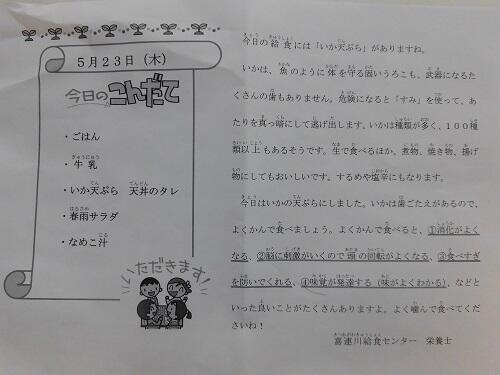 5月23日（木）
今日のこんだて
・ごはん
・牛乳
・いか天ぷら　天丼のタレ
・春雨サラダ
・なめこ汁
いただきます！
今日の給食には「いか天ぷら」がありますね。
いかは、魚のように体を守る固いうろこも、武器になるた
くさんの歯もありません。危険になると「すみ」を使って、あ
たりを真っ暗にして逃げ出します。いかは種類が多く、100種
類以上もあるそうです。生で食べるほか、煮物、焼き物、揚げ
物にしてもおいしいです。するめや塩辛にもなります。
今日はいかの天ぷらにしました。いかは歯ごたえがあるので、
よくかんで食べましょう。よくかんで食べると、①消化がよく
なる、②脳に刺激がいくので頭の回転がよくなる、③食べすぎ
を防いでくれる、④味覚が発達する（味がよくわかる）、などと
いった良いことがたくさんありますよ。よく噛んで食べてくだ
さいね！
喜連川給食センター　栄養士